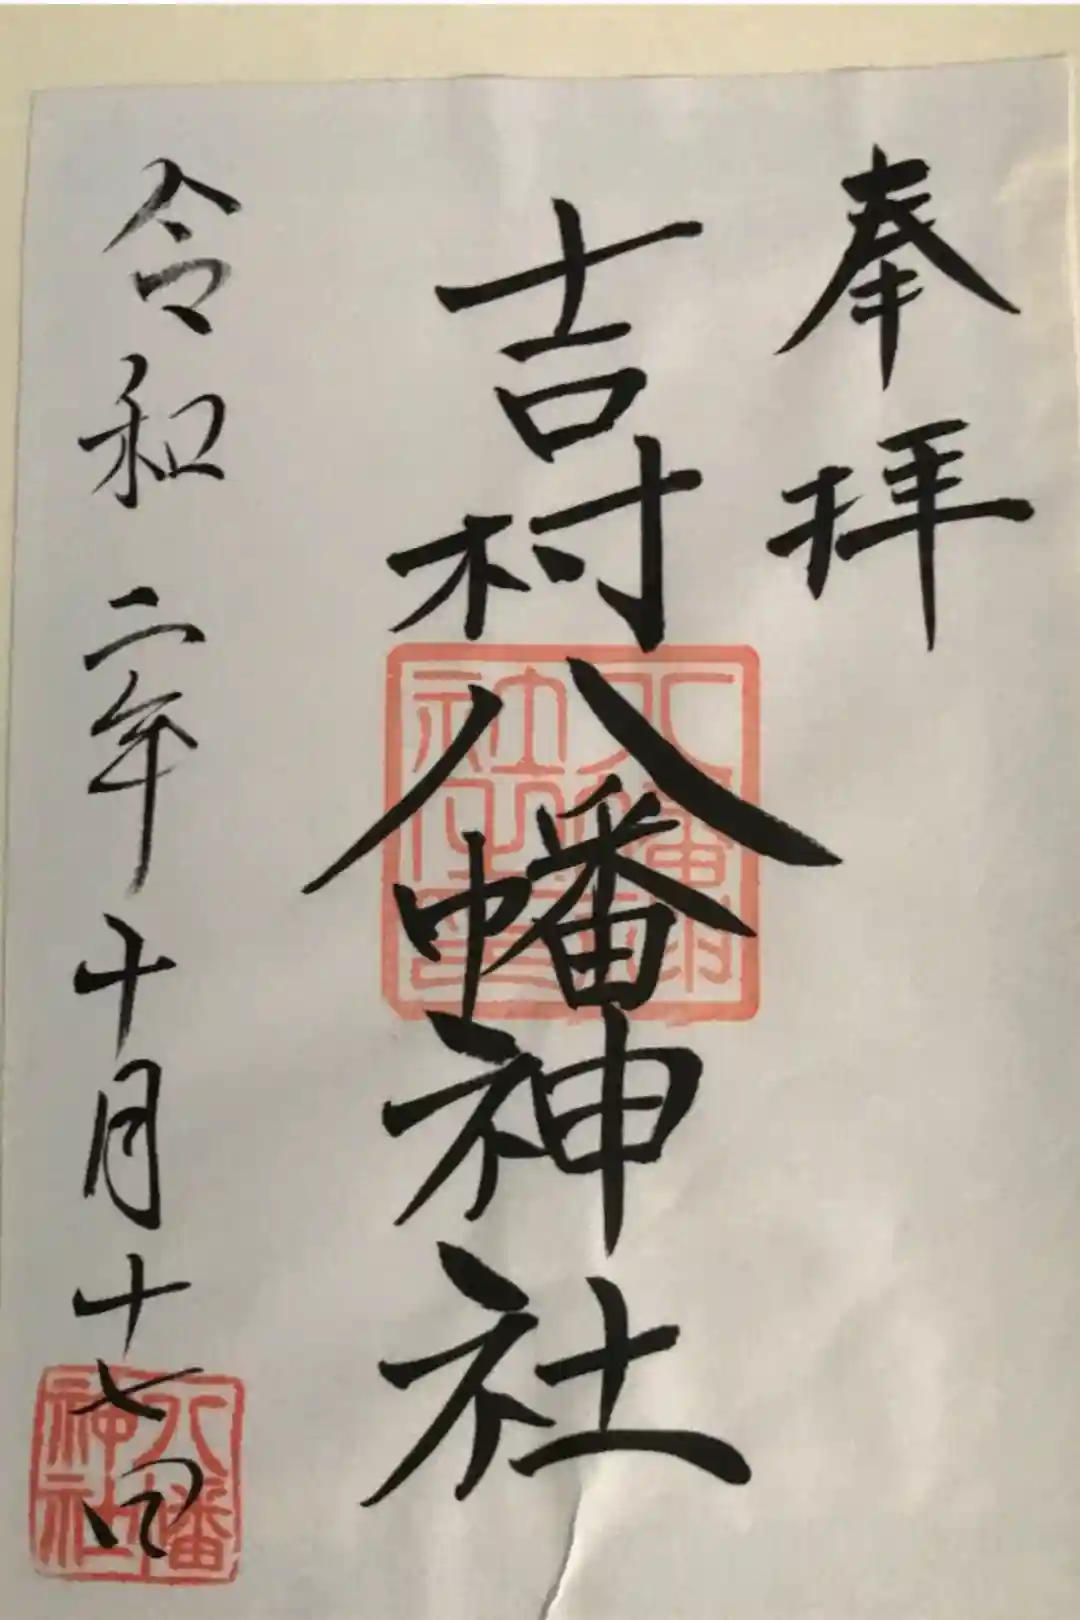 奉拝
吉村八幡神社
令和二年十月十七日
八幡神社